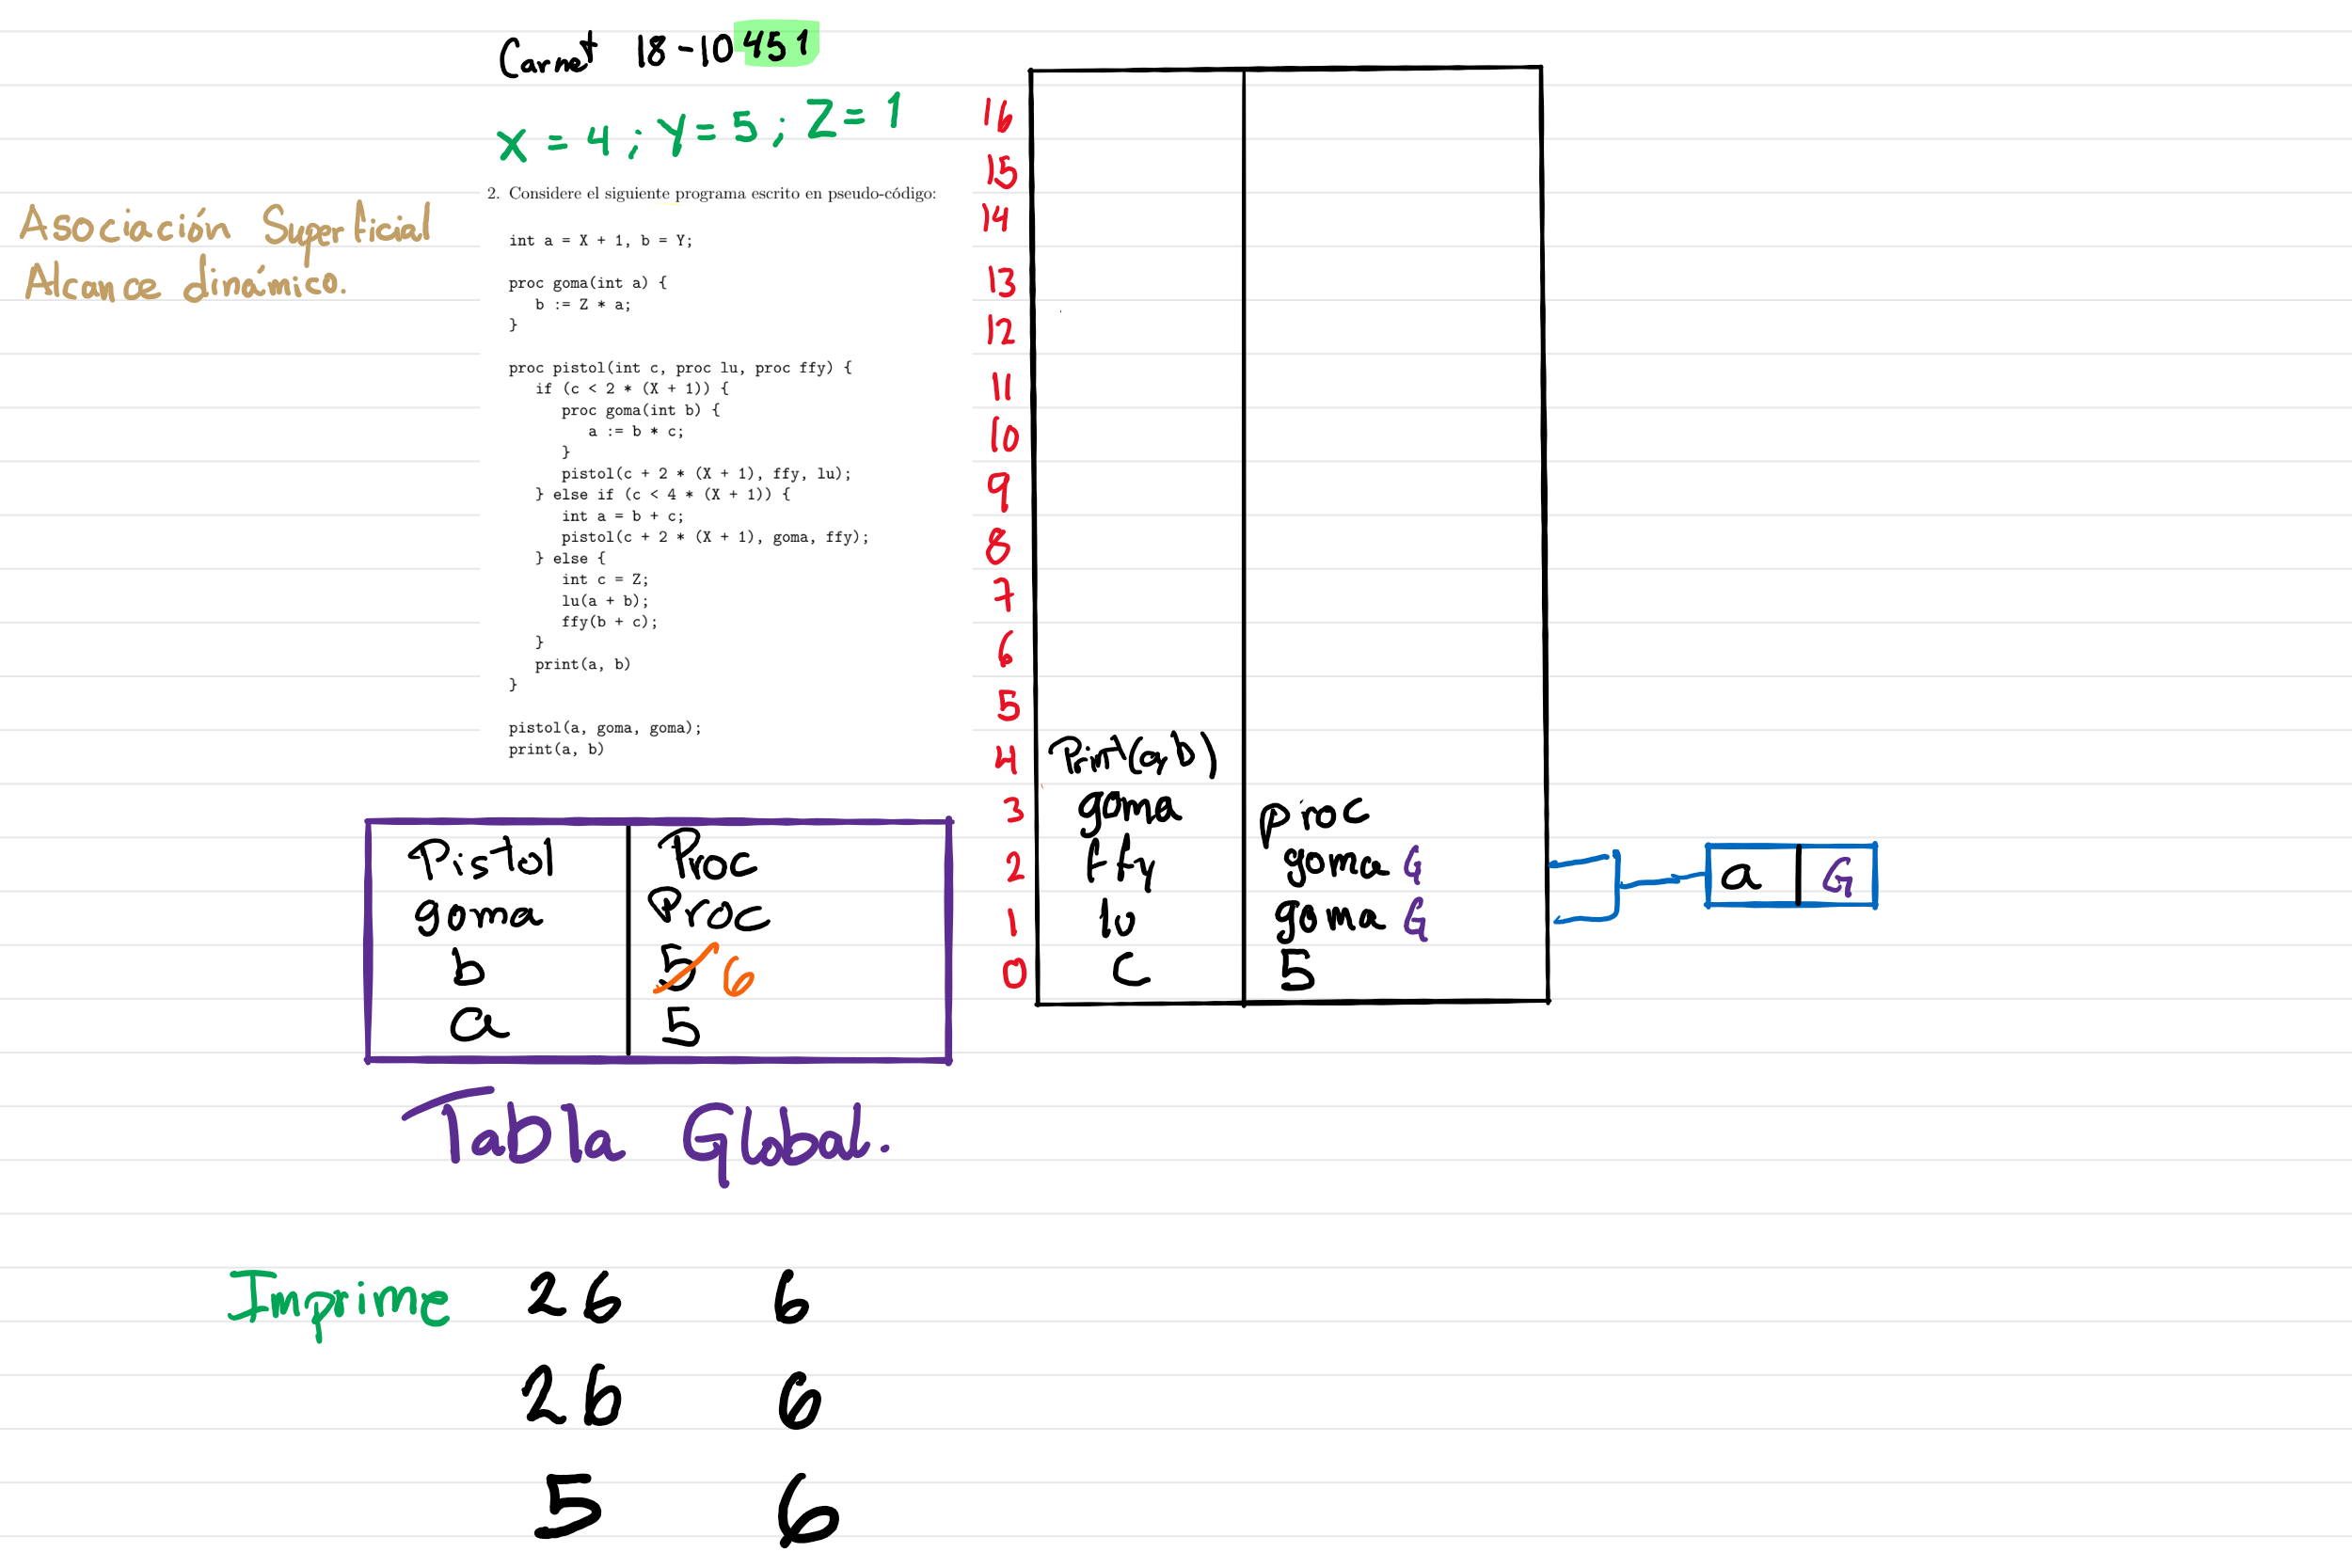 Carnet 18-10451
X = 4; Y = 5; Z = 1
Asociación Superficial
Alcance dinámico.
2. Considere el siguiente programa escrito en pseudo-código:
int a = X + 1, b = Y;
proc goma(int a) {
b := Z * a;
}
proc pistol(int c, proc lu, proc ffy) {
if (c < 2 * (X + 1)) {
proc goma(int b) {
a := b * c;
}
pistol(c + 2 * (X + 1), ffy, lu);
} else if (c < 4 * (X + 1)) {
int a = b + c;
pistol(c + 2 * (X + 1), goma, ffy);
} else {
int c = Z;
lu(a + b);
ffy(b + c);
}
print(a, b)
}
pistol(a, goma, goma);
print(a, b)
16
15
14
13
12
11
10
9
8
7
6
5
4 Print(a,b)
3 goma proc
2 ffy goma G
1 lu goma G
0 c 5
a G
Pistol Proc
goma Proc
b 5 6
a 5
Tabla Global.
Imprime 26 6
26 6
5 6